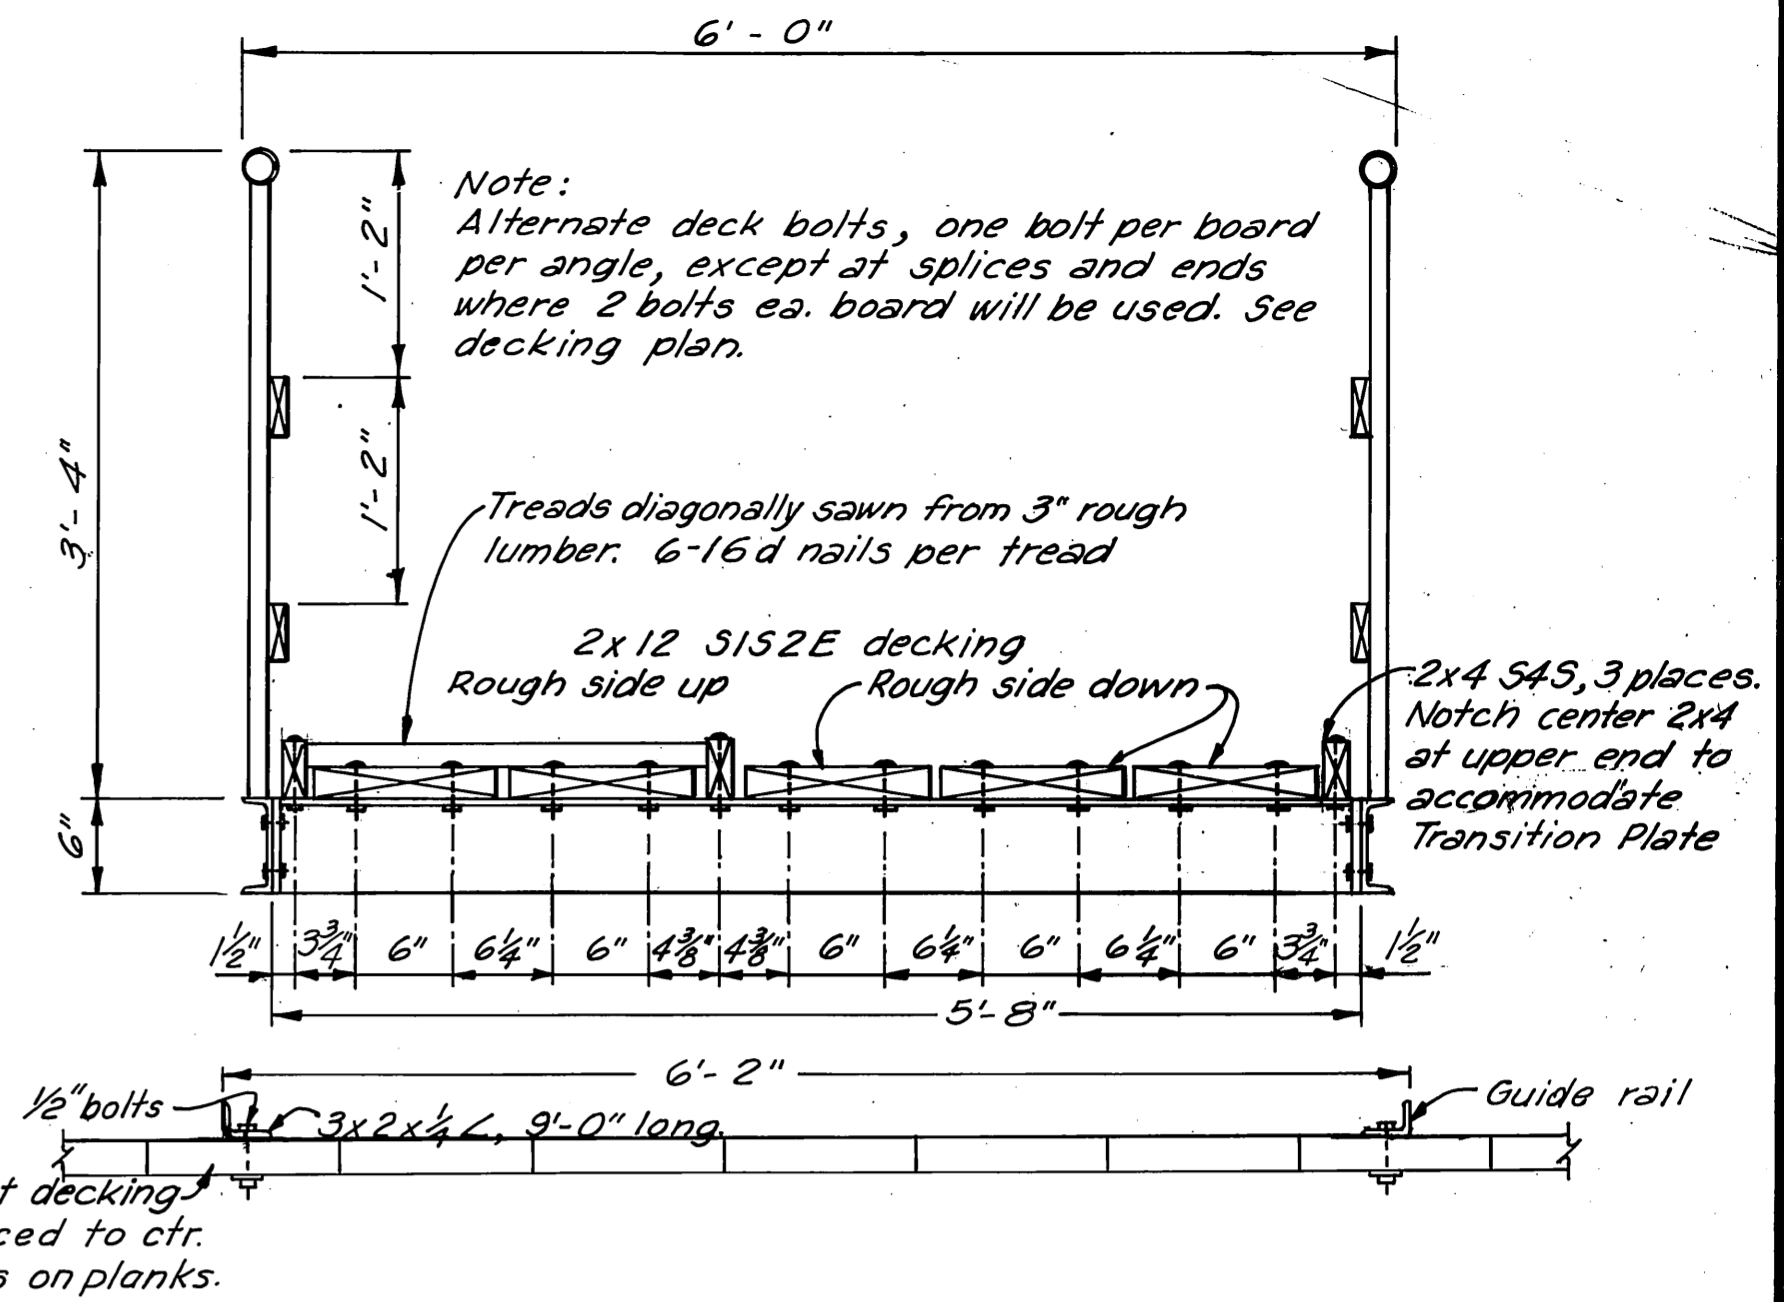 6'-0"
Note:
Alternate deck bolts, one bolt per board
per angle, except at splices and ends
where 2 bolts ea. board will be used. See
decking plan.
1'-2"
1'-2"
3'-4"
6"
Treads diagonally sawn from 3" rough
lumber. 6-16d nails per tread
2x12 S1S2E decking
Rough side up
Rough side down
2x4 S4S, 3 places.
Notch center 2x4
at upper end to
accommodate
Transition Plate
1½" 3¾" 6" 6¼" 6" 4⅜" 4⅜" 6" 6¼" 6" 6¼" 6" 3¾" 1½"
5'-8"
6'-2"
½" bolts
3x2x¼ ∠, 9'-0" long.
Guide rail
decking
to ctr.
on planks.